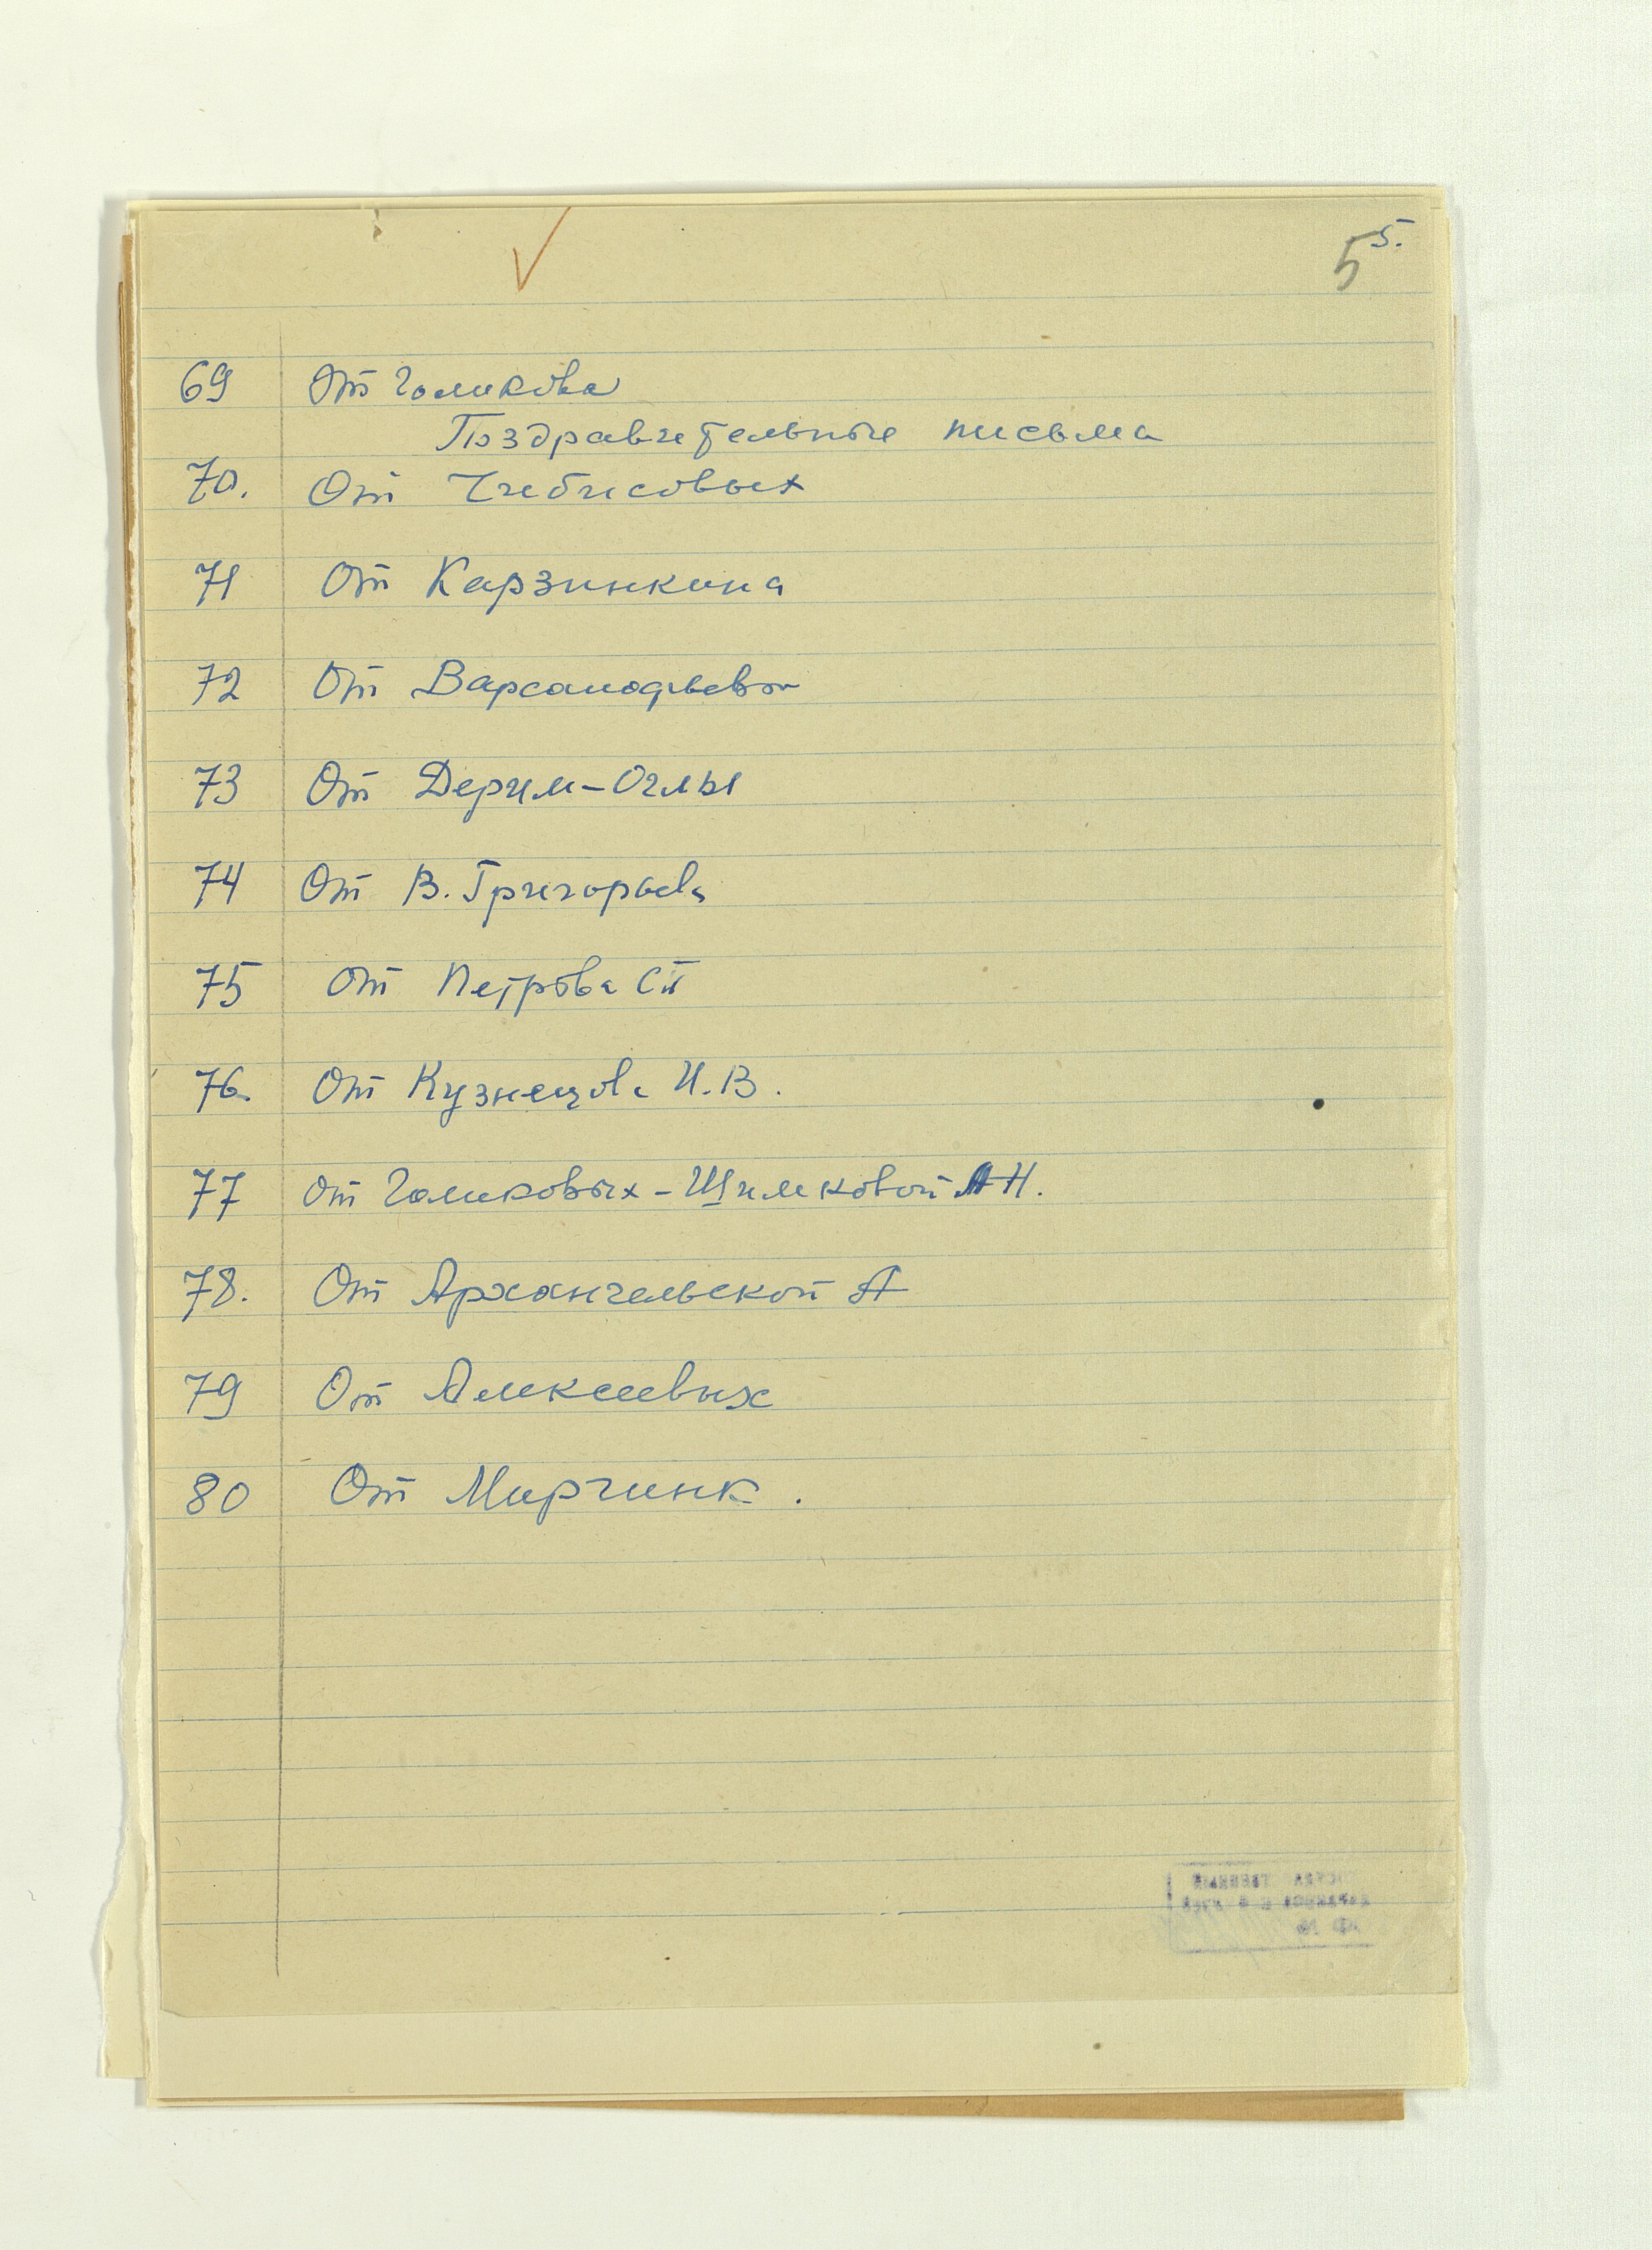 5 5.
69 От Голикова
Поздравительные письма
70. От Чибисовых
71 От Карзинкина
72 От Варсанофьевой
73 От Дерим-Оглы
74 От В. Григорьева
75 От Петрова СП
76. От Кузнецова И.В.
77 От Голиковых-Шимковой АН.
78. От Архангельской А
79 От Алексеевых
80 От Мирчинк.